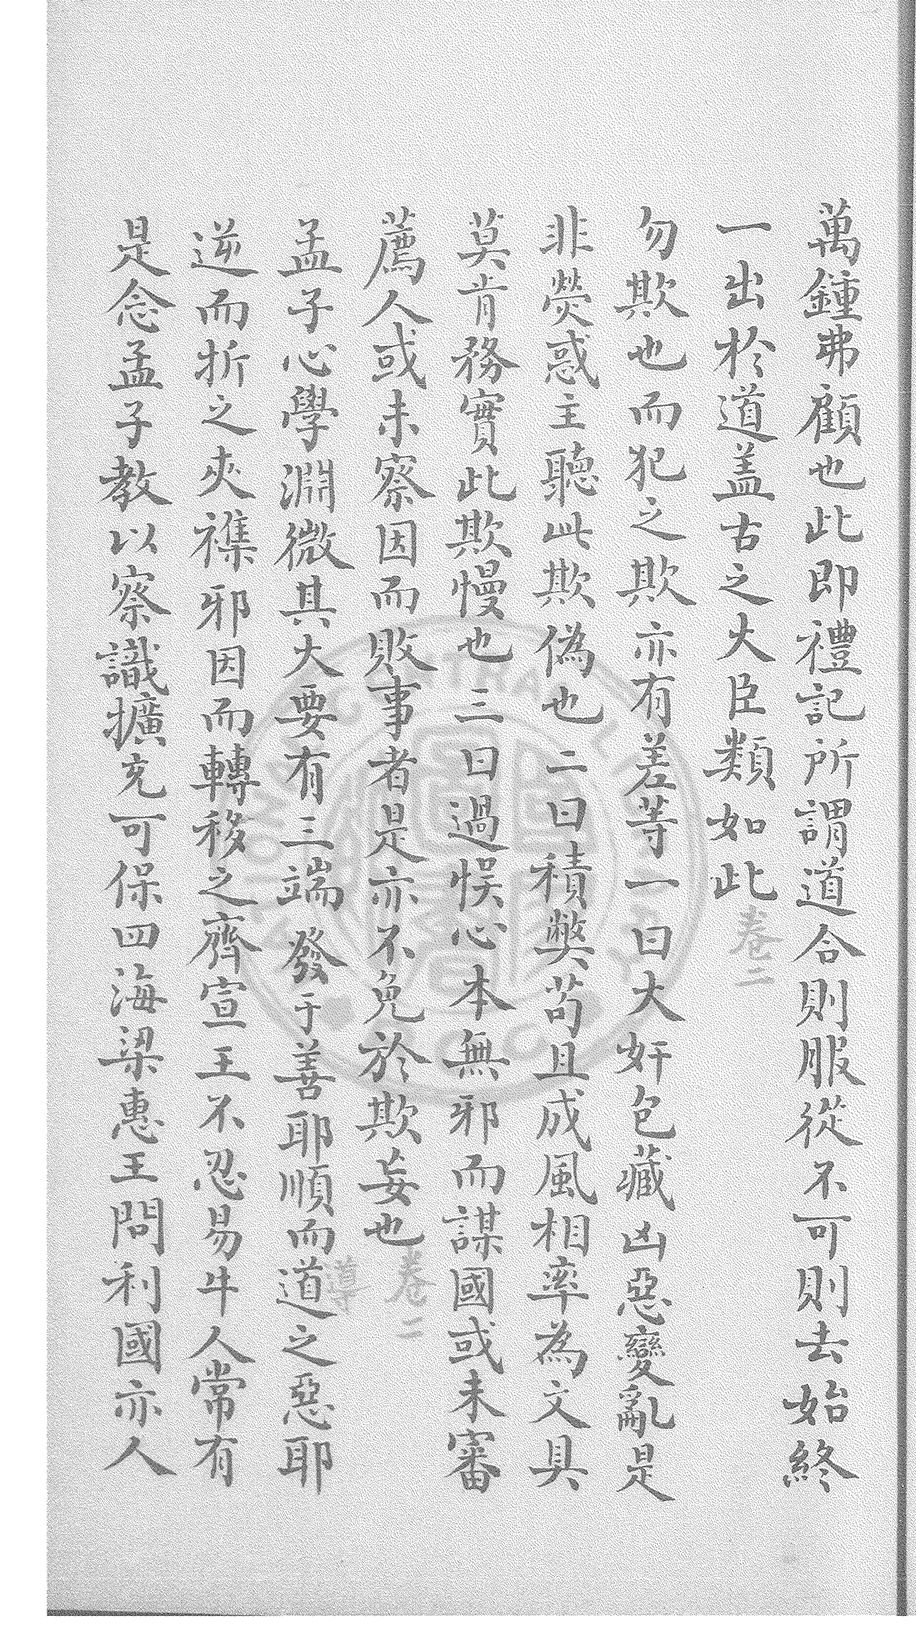 萬鍾弗顧也此即禮記所謂道合則服從不可則去始終
一出於道盖古之大臣類如此卷二
勿欺也而犯之欺亦有差等一曰大奸包藏凶惡變亂是
非熒惑主聽此欺偽也二曰積弊苟且成風相率為文具
莫肯務實此欺慢也三曰過悮心本無邪而謀國或未審
薦人或未察因而敗事者是亦不免於欺妄也卷二
孟子心學淵微其大要有三端發于善耶順而道之惡耶
導
逆而折之夾襍邪因而轉移之齊宣王不忍易牛人常有
是念孟子教以察識擴充可保四海梁惠王問利國亦人
NATIONAL CENTRAL LIBRARY
R.O.C.